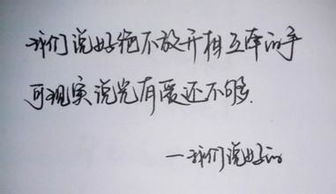 我们说好绝不放开相互牵的手
可现实说光有爱还不够
一我们说好的